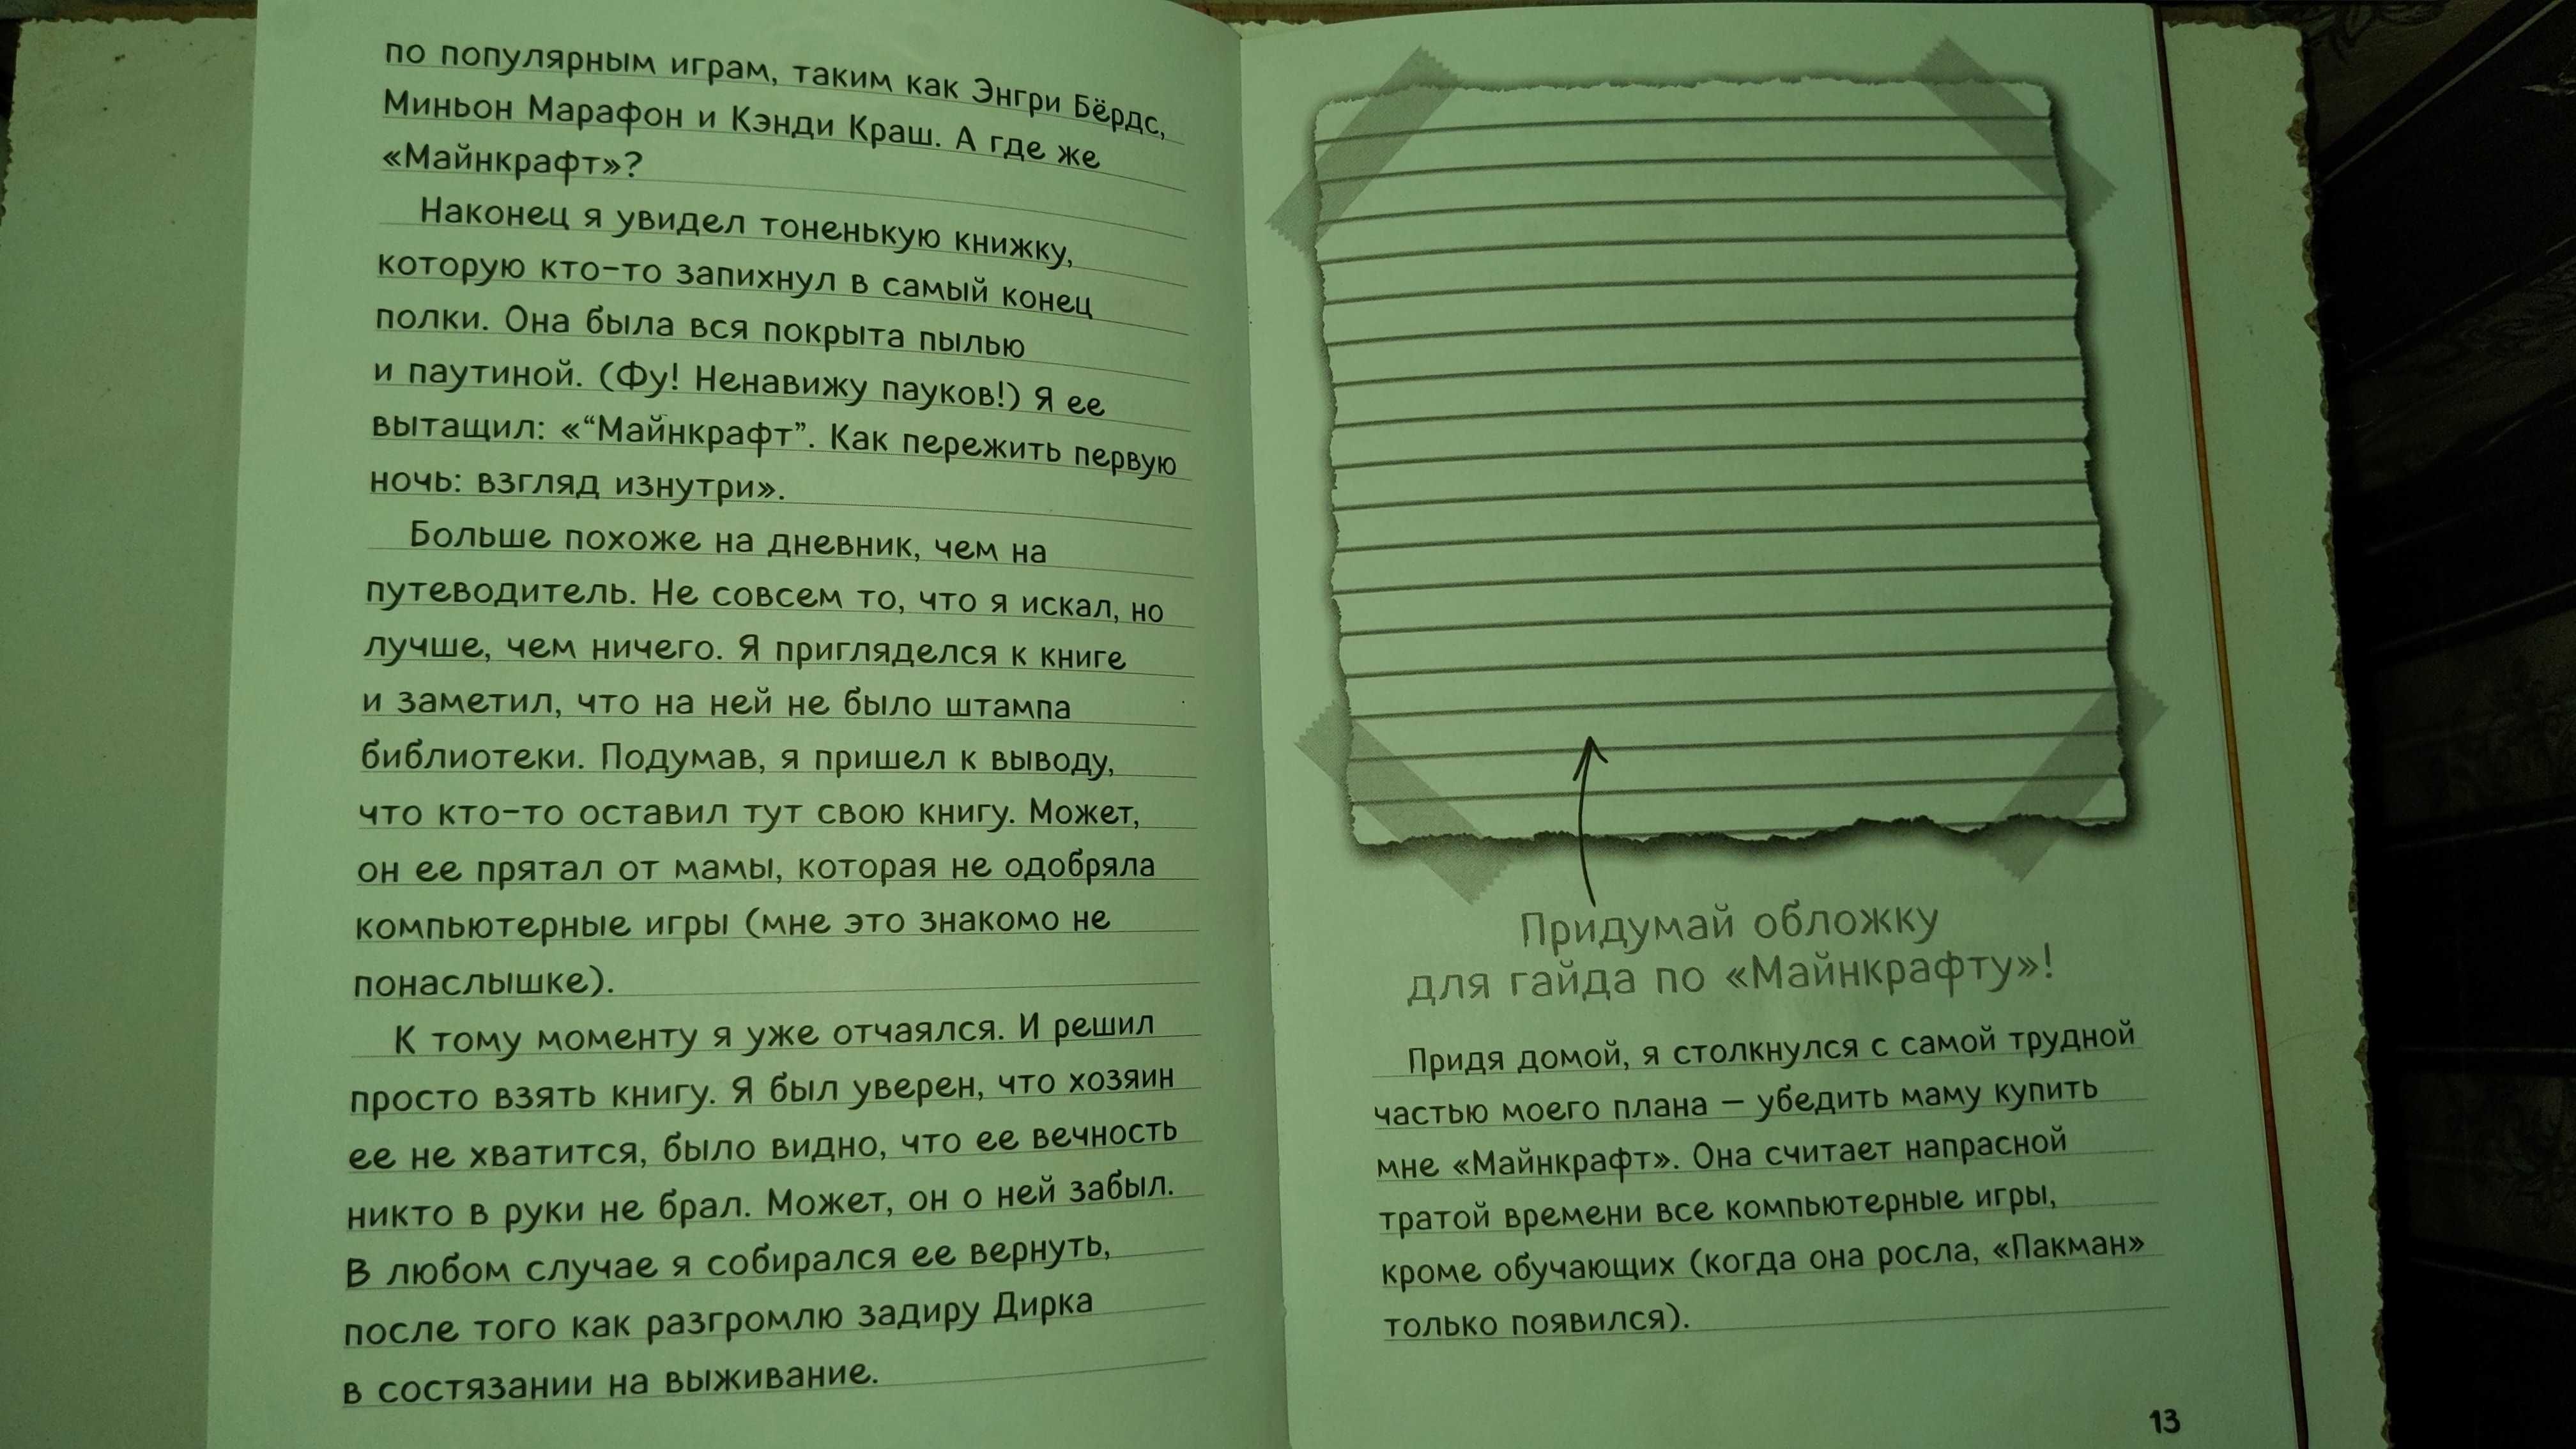 по популярным играм, таким как Энгри Бёрдс,
Миньон Марафон и Кэнди Краш. А где же
«Майнкрафт»?
Наконец я увидел тоненькую книжку,
которую кто-то запихнул в самый конец
полки. Она была вся покрыта пылью
и паутиной. (Фу! Ненавижу пауков!) Я ее
вытащил: «“Майнкрафт”. Как пережить первую
ночь: взгляд изнутри».
Больше похоже на дневник, чем на
путеводитель. Не совсем то, что я искал, но
лучше, чем ничего. Я пригляделся к книге
и заметил, что на ней не было штампа
библиотеки. Подумав, я пришел к выводу,
что кто-то оставил тут свою книгу. Может,
он ее прятал от мамы, которая не одобряла
компьютерные игры (мне это знакомо не
понаслышке).
К тому моменту я уже отчаялся. И решил
просто взять книгу. Я был уверен, что хозяин
ее не хватится, было видно, что ее вечность
никто в руки не брал. Может, он о ней забыл.
В любом случае я собирался ее вернуть,
после того как разгромлю задиру Дирка
в состязании на выживание.
Придумай обложку
для гайда по «Майнкрафту»!
Придя домой, я столкнулся с самой трудной
частью моего плана — убедить маму купить
мне «Майнкрафт». Она считает напрасной
тратой времени все компьютерные игры,
кроме обучающих (когда она росла, «Пакман»
только появился).
13